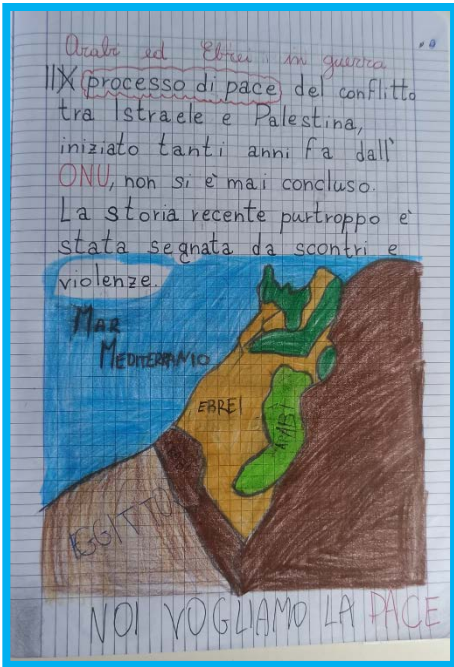 Arabi ed Ebrei in guerra
Il processo di pace del conflitto
tra Istraele e Palestina,
iniziato tanti anni fa dall'
ONU, non si è mai concluso.
La storia recente purtroppo è
stata segnata da scontri e
violenze.
MAR
MEDITERRANIO
EBREI
ARABI
EGGITTO
NOI VOGLIAMO LA PACE